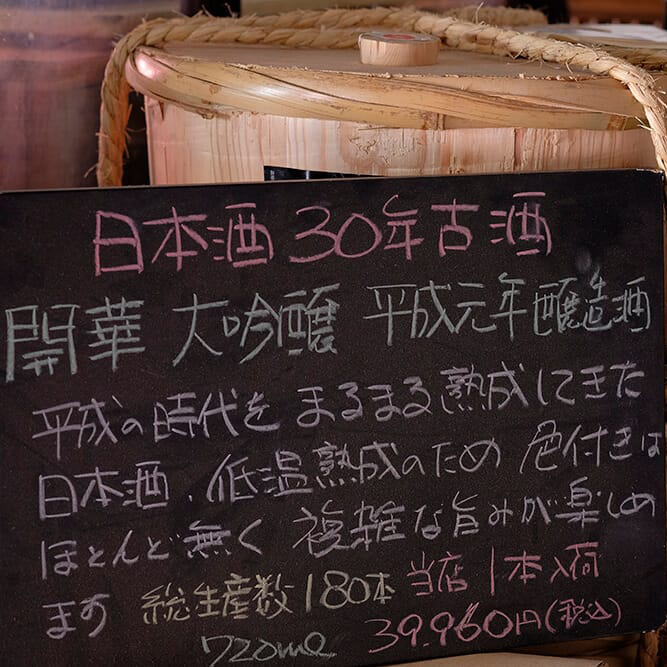 日本酒 30年古酒
開華 大吟醸 平成元年醸造酒
平成の時代を まるまる熟成してきた
日本酒、低温熟成のため 色付きは
ほとんど無く 複雑な旨みが楽しめ
ます 総生産数180本 当店1本入荷
720ml 39.960円(税込)